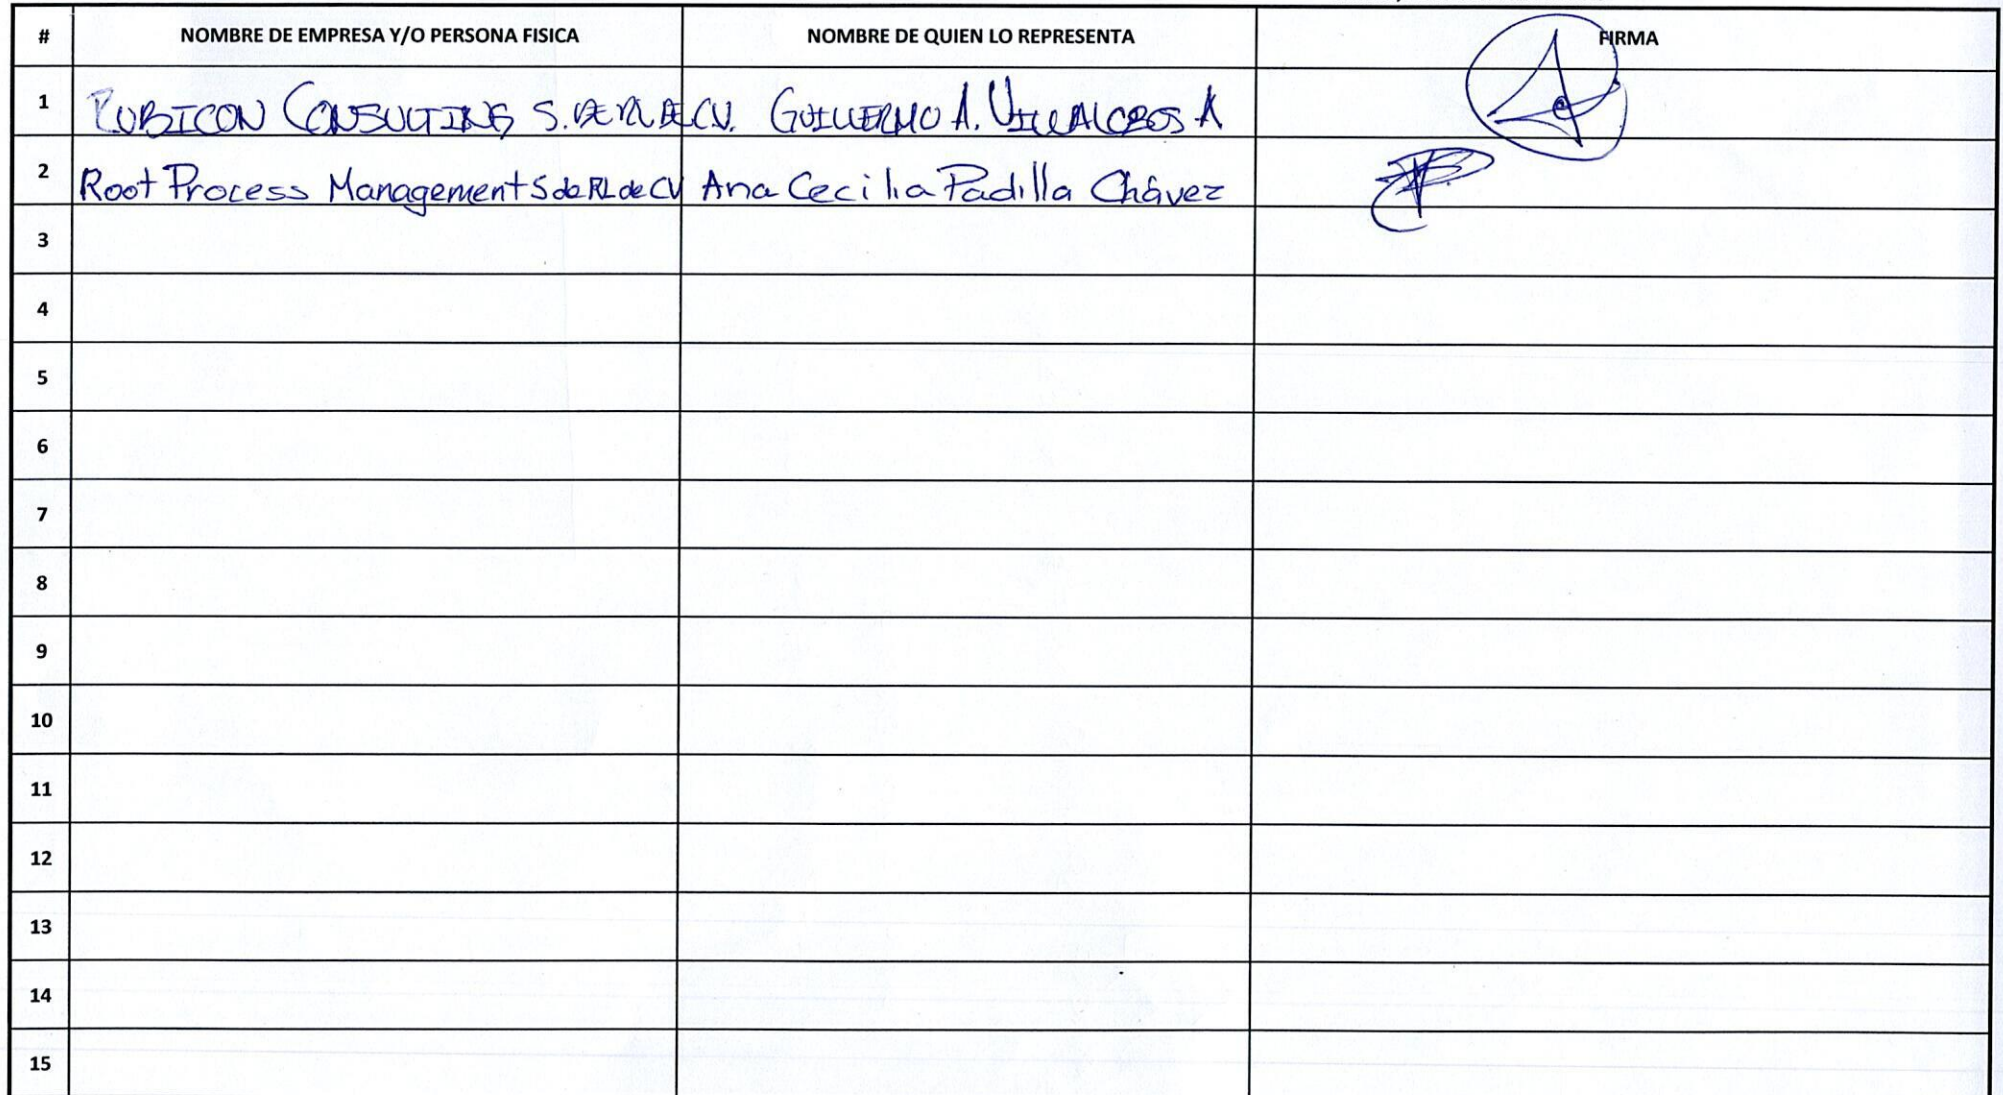 # NOMBRE DE EMPRESA Y/O PERSONA FISICA NOMBRE DE QUIEN LO REPRESENTA FIRMA
1 RUBICON CONSULTING S. DE RL DE CV. GUILLERMO A. VILLALOBOS A
2 Root Process Management S de RL de CV Ana Cecilia Padilla Chávez
3
4
5
6
7
8
9
10
11
12
13
14
15